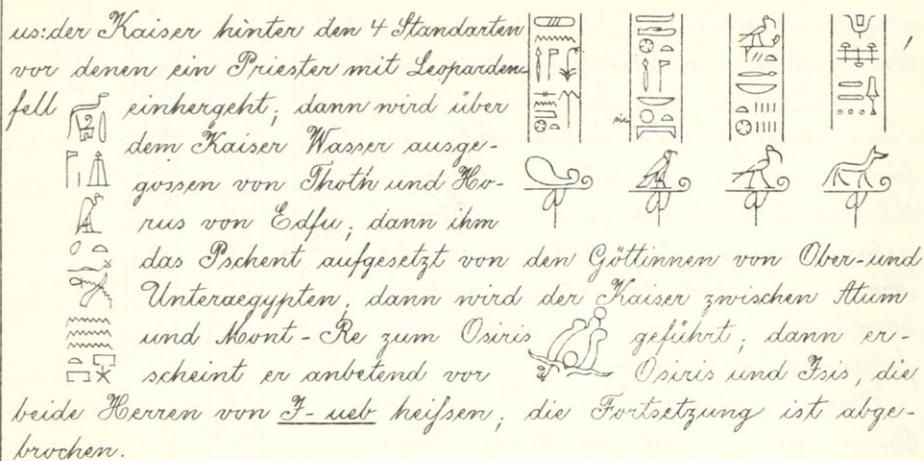 us: der Kaiser hinter den 4 Standarten
vor denen ein Priester mit Leoparden-
fell einhergeht; dann wird über
dem Kaiser Wasser ausge-
gossen von Thoth und Ho-
rus von Edfu; dann ihm
das Pschent aufgesetzt von den Göttinnen von Ober- und
Unteraegypten; dann wird der Kaiser zwischen Atum
und Mont-Re zum Osiris geführt; dann er-
scheint er anbetend vor Osiris und Isis, die
beide Herren von I-ueb heiſsen; die Fortsetzung ist abge-
brochen.